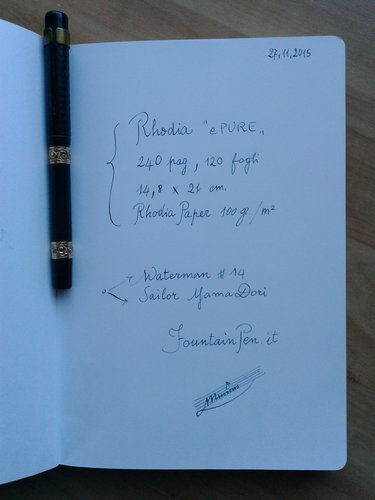 27,11,2015
Rhodia "ePURE„
240 pag, 120 fogli
14,8 x 21 cm.
Rhodia Paper 100 gr/m²
Waterman # 14
Sailor YamaDori
FountainPen.it